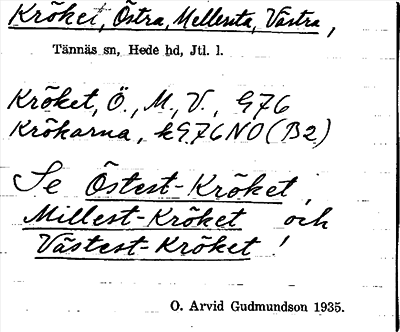 Kröket, Östra, Mellersta, Västra,
Tännäs sn, Hede hd, Jtl. l.
Kröket, Ö., M., V., G76
Krökarna, kG76NO (B2)
Se Östest-Kröket,
Millest-Kröket och
Västest-Kröket!
O. Arvid Gudmundson 1935.